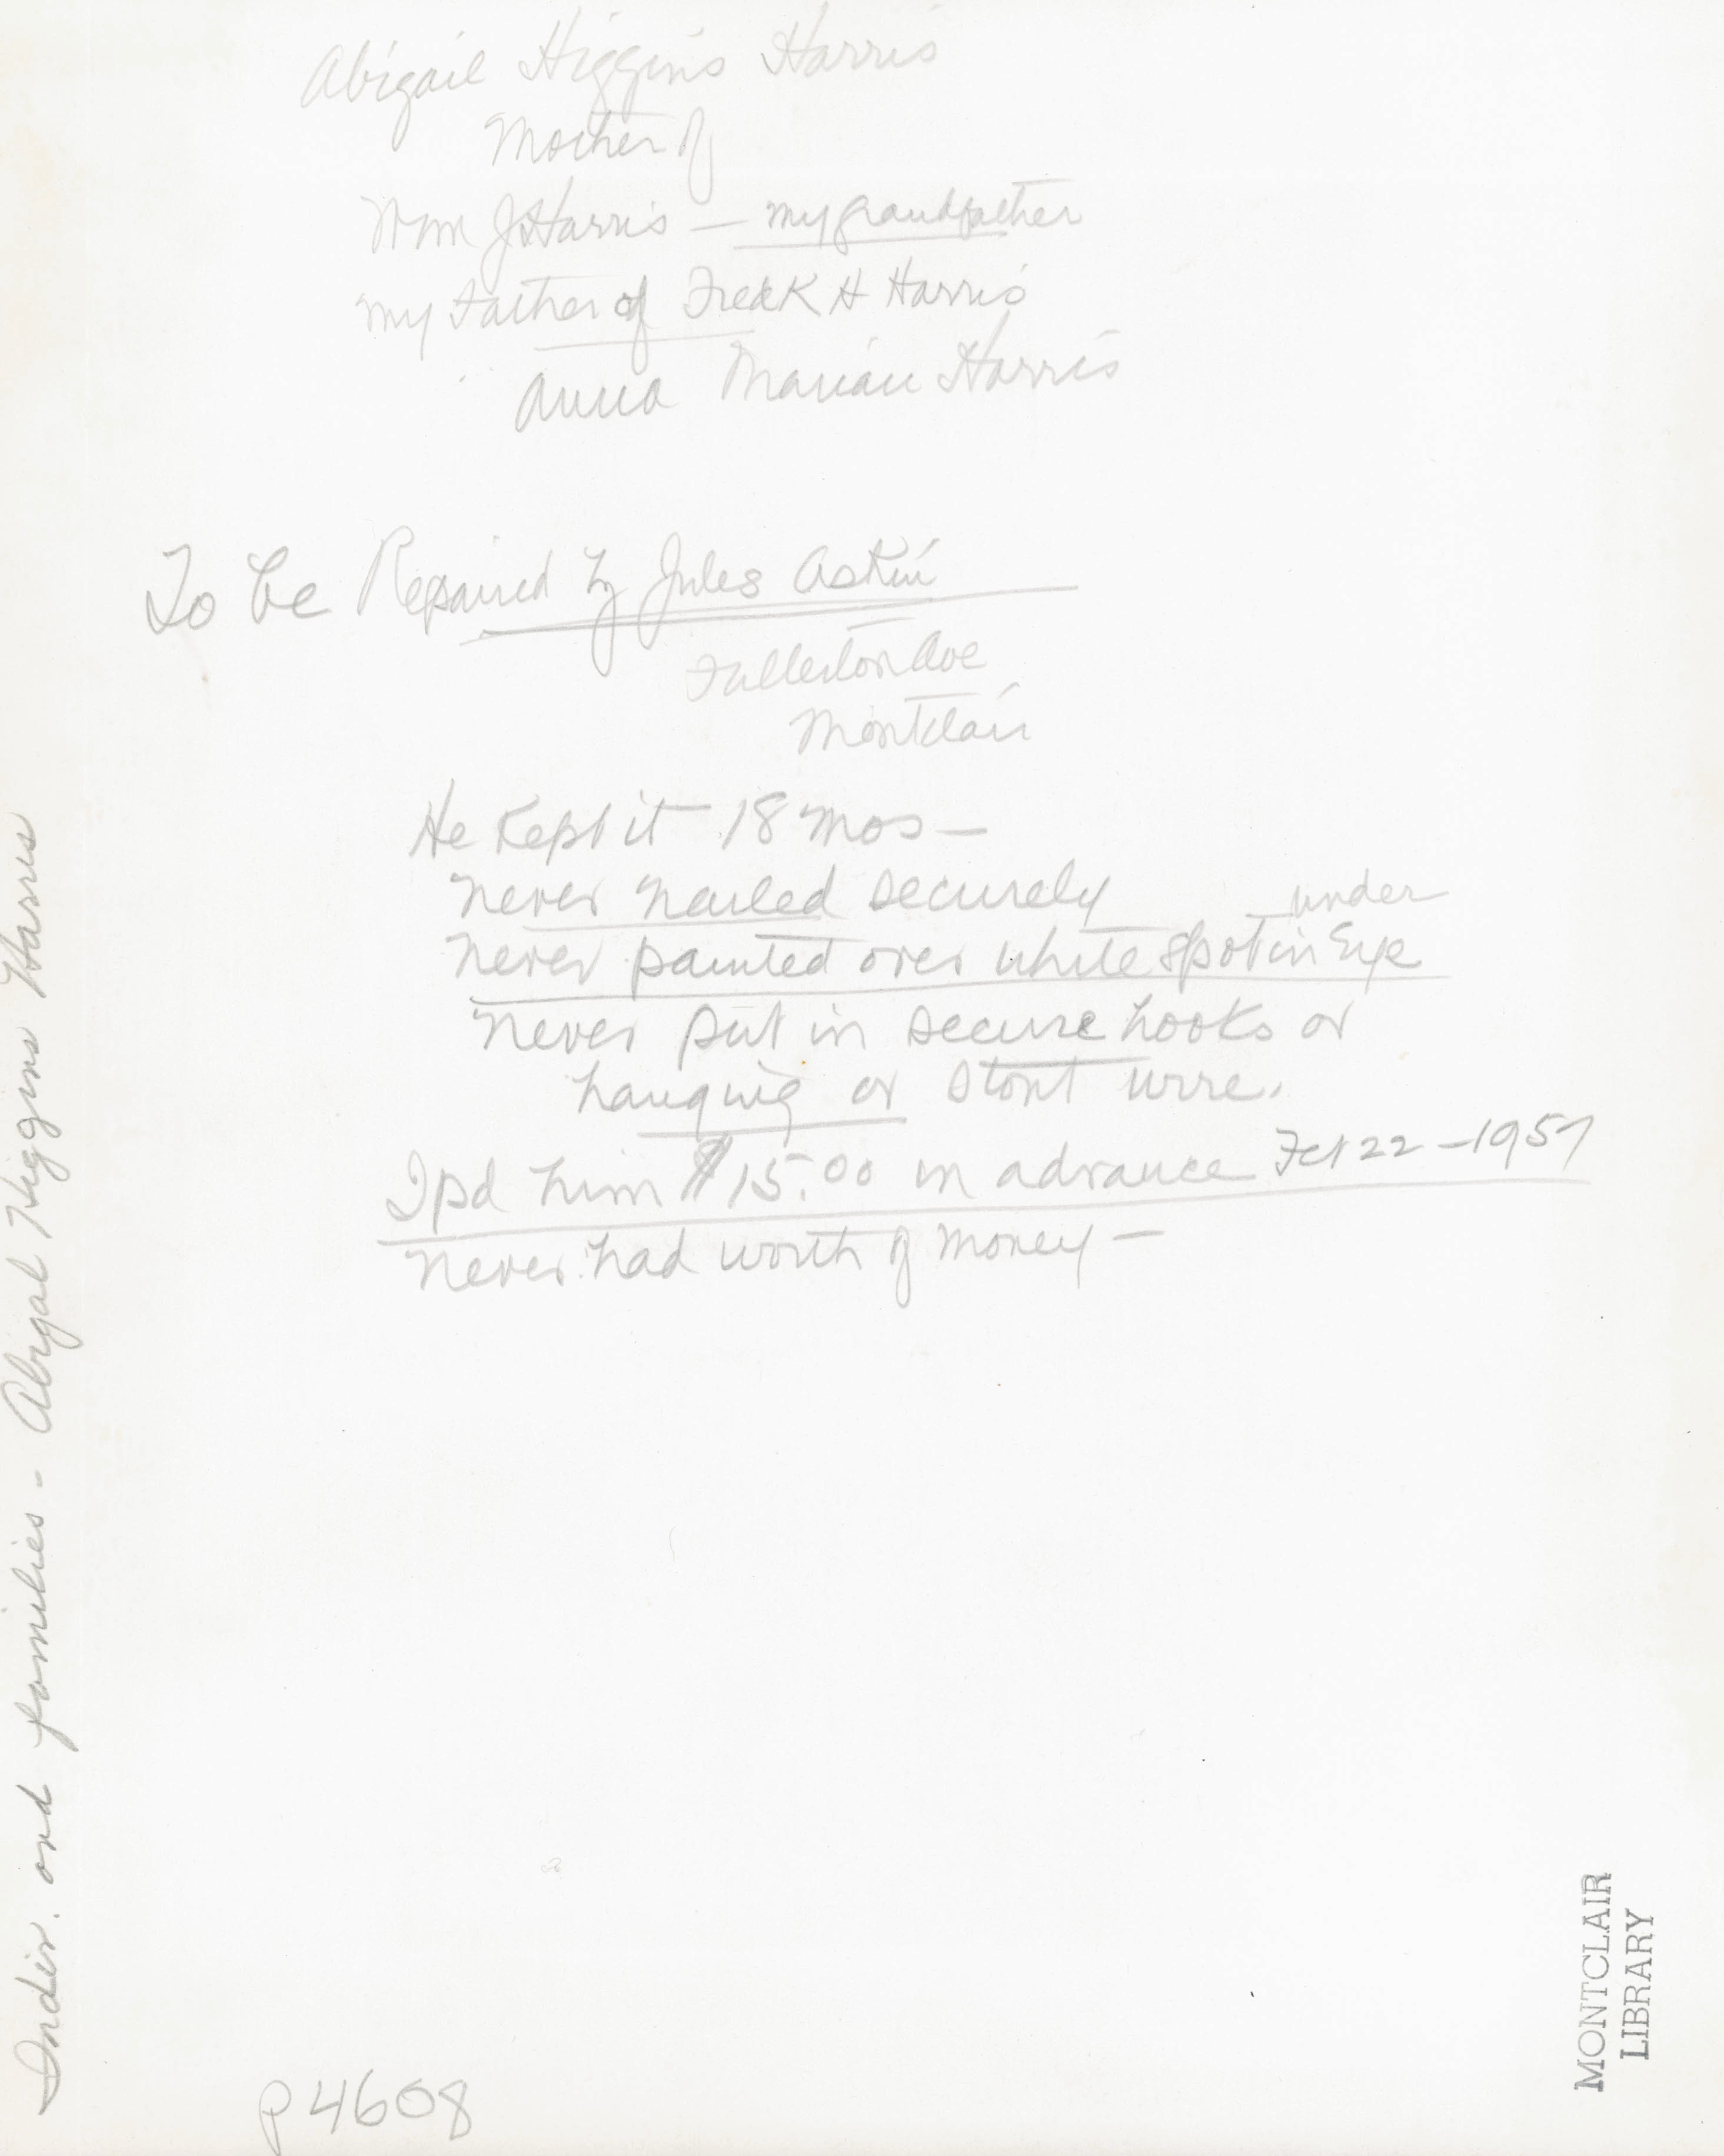 Abigail Higgins Harris
Mother of
Wm J Harris — my grandfather
my Father of Fredk H Harris
Anna Marian Harris
To be Repaired by Jules Askin
Fullerton Ave
Montclair
He Kept it 18 mos —
never nailed securely
under
never painted over white spot in Eye
never put in secure hooks or
hanging or stout wire.
I pd him $15.00 in advance 22 - 1957
never had worth of money —
Indiv. and families - Abigal Higgins Harris
P4608
MONTCLAIR
LIBRARY